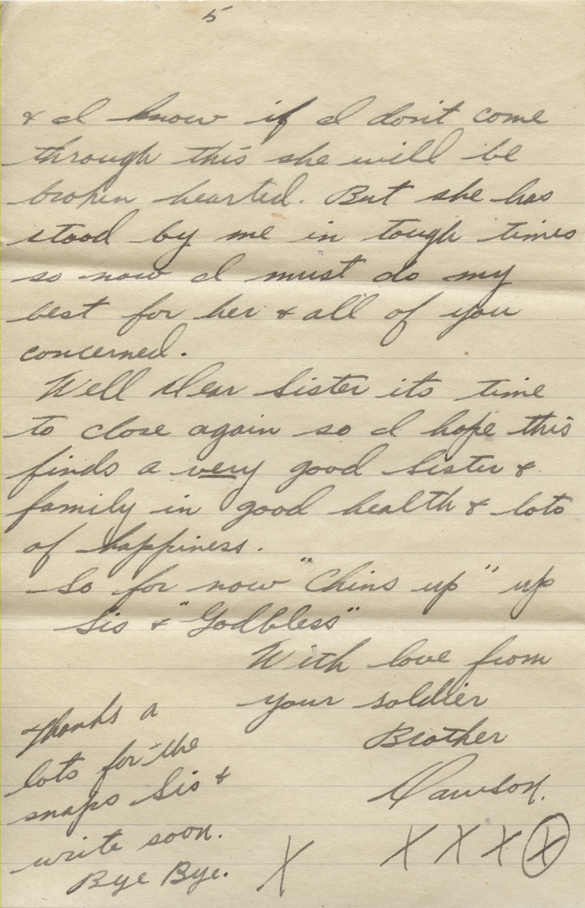 5
& I know if I don't come
through this she will be
broken hearted. But she has
stood by me in tough times
so now I must do my
best for her & all of you
concerned.
Well dear Sister its time
to close again so I hope this
finds a very good Sister &
family in good health & lots
of happiness.
So for now "Chins up" up
Sis & "Godbless"
With love from
your soldier
Brother
Dawson.
X X X X X
Thanks a
lots for the
snaps Sis &
write soon.
Bye Bye.